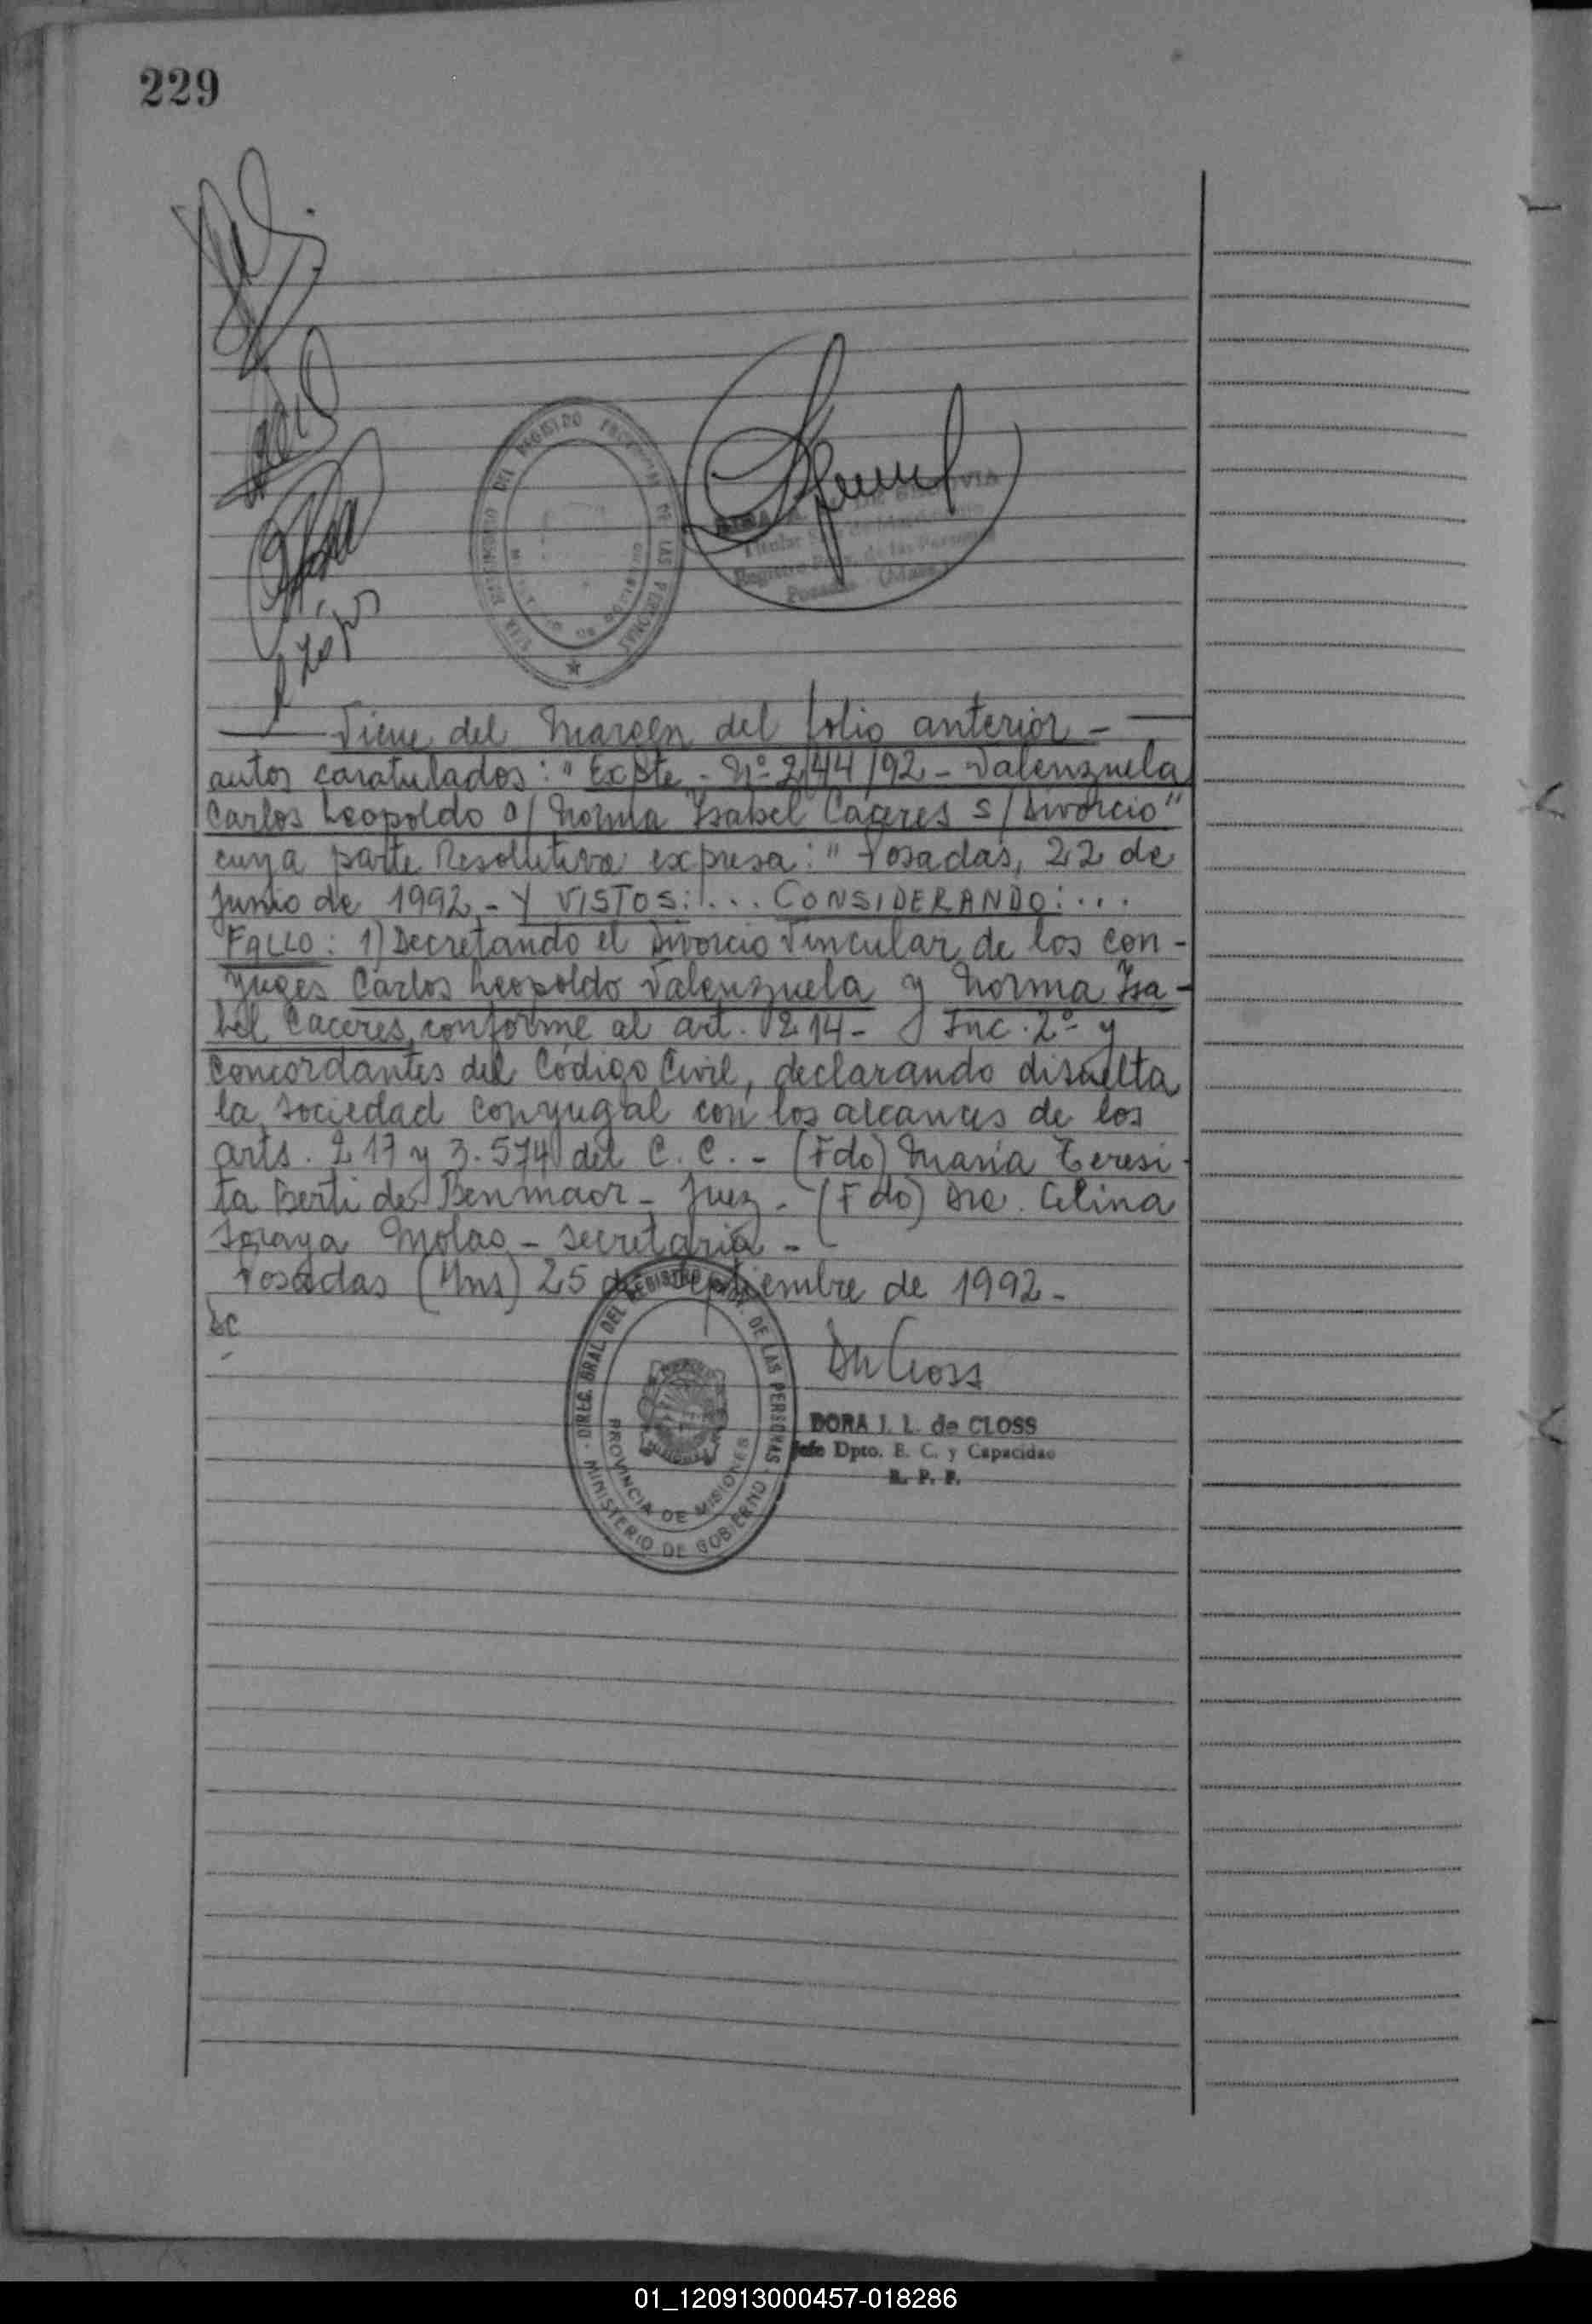 229
DEL REGISTRO PROVINCIAL DE LAS PERSONAS
Registro Prov. de las Personas
Posadas (Mnes.)
Viene del Margen del folio anterior -
autos caratulados: "Expte - Nº 2144/92 - Valenzuela
Carlos Leopoldo c/ Norma Isabel Caceres s/ Divorcio"
cuya parte Resolutiva expresa: "Posadas, 22 de
Junio de 1992 - Y VISTOS: ... CONSIDERANDO: ...
FALLO: 1) Decretando el Divorcio Vincular de los con-
yuges Carlos Leopoldo Valenzuela y Norma Isa-
bel Caceres, conforme al art. 214 - Inc. 2º y
concordantes del Código Civil, declarando disuelta
la sociedad conyugal con los alcances de los
arts. 217 y 3.574 del C. C. - (Fdo) Maria Teresi-
ta Berti de Benmaor - Juez - (Fdo) Dra. Celina
Soraya Molas - Secretaria -
Posadas (Mns) 25 de Septiembre de 1992 -
DC
DIREC. GRAL. DEL REGISTRO PROV. DE LAS PERSONAS
PROVINCIA DE MISIONES
MINISTERIO DE GOBIERNO
DORA I. L. de CLOSS
Jefe Dpto. E. C. y Capacidad
R. P. P.
01_120913000457-018286